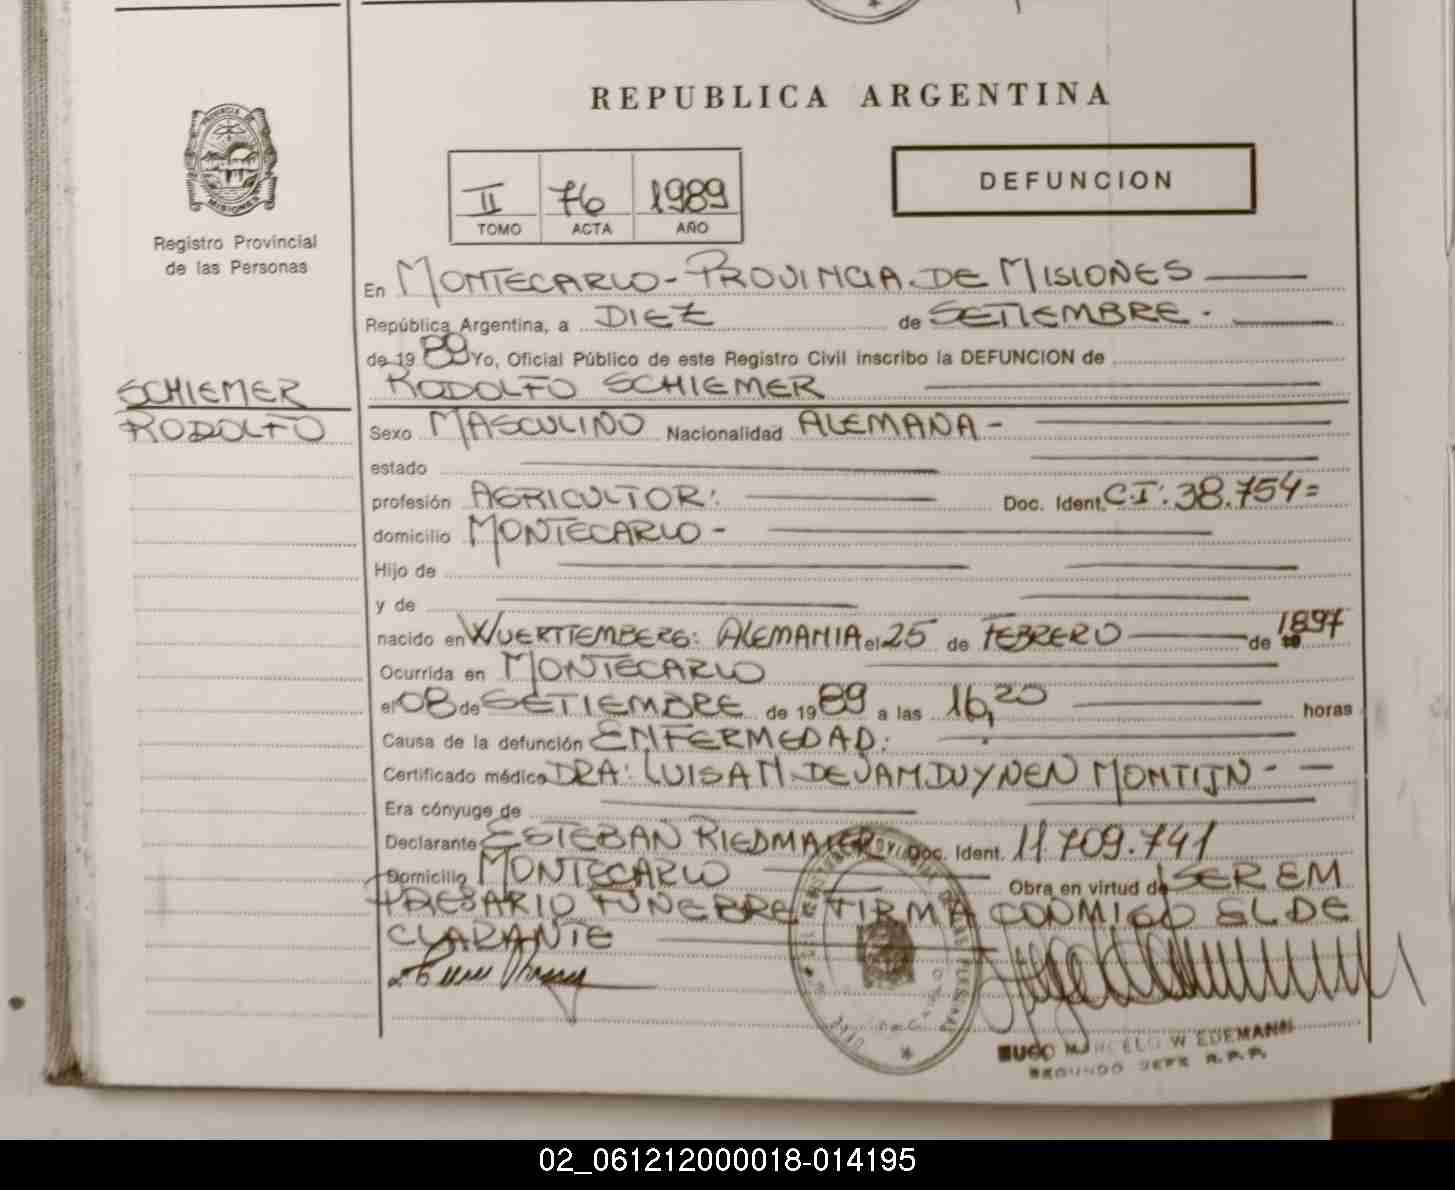 REPUBLICA ARGENTINA
PROVINCIA DE
MISIONES
Registro Provincial
de las Personas
II 76 1989
TOMO ACTA AÑO
DEFUNCION
En MONTECARLO - PROVINCIA DE MISIONES
República Argentina, a DIEZ de SETIEMBRE.
de 1989 Yo, Oficial Público de este Registro Civil inscribo la DEFUNCION de
SCHIEMER
RODOLFO
RODOLFO SCHIEMER
Sexo MASCULINO Nacionalidad ALEMANA -
estado
profesión AGRICULTOR: Doc. Ident. C.I: 38.754=
domicilio MONTECARLO -
Hijo de
y de
nacido en WUERTTEMBERG: ALEMANIA el 25 de FEBRERO de 1897
Ocurrida en MONTECARLO
el 08 de SETIEMBRE de 1989 a las 16,20 horas
Causa de la defunción ENFERMEDAD:
Certificado médico DRA: LUISA M. DE VAN DUYNEN MONTIJN -
Era cónyuge de
Declarante ESTEBAN RIEDMAIER Doc. Ident. 11.709.741
Domicilio MONTECARLO Obra en virtud de SER EM
PRESARIO FUNEBRE FIRMA CONMIGO EL DE
CLARANTE
HUGO MARCELO WIEDEMANN
SEGUNDO JEFE R.P.P.
02_061212000018-014195